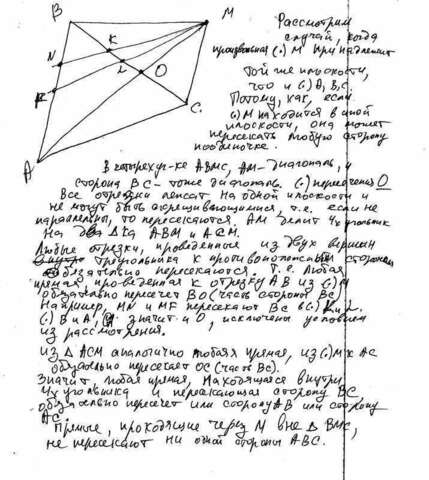 B
M
K
N
L
O
F
C.
A
Рассмотрим
случай, когда
произвольная (.) М принадлежит
той же плоскости,
что и (.) А, В, С.
Потому, как, если
(.) М находится в иной
плоскости, она может
пересекать любую сторону
поодиночке.
В четырехуг-ке АВМС, АМ-диагональ, и
сторона ВС - тоже диагональ. (.) пересечения О
Все отрезки лежат на одной плоскости и
не могут быть скрещивающимися, т.е. если не
параллельны, то пересекаются. АМ делит 4х угольник
На два Δка АВМ и АСМ.
Любые отрезки, проведенные из двух вершин
треугольника к противоположным сторонам
обязательно пересекаются. Т.е. Любая
прямая, проведенная к отрезку АВ из (.) М
обязательно пересечет ВО (часть стороны ВС)
Например, MN и MF пересекают ВС в (.) K и L.
(.) В и А, значит и О, исключены условием
из рассмотрения.
Из Δ АСМ аналогично любая прямая, из (.) М к АС
обязательно пересекает ОС (часть ВС).
Значит, любая прямая, находящаяся внутри
4х угольника и пересекающая сторону ВС,
обязательно пересечет или сторону АВ или сторону
АС.
Прямые, проходящие через М вне Δ ВМС,
не пересекают ни одной стороны АВС.